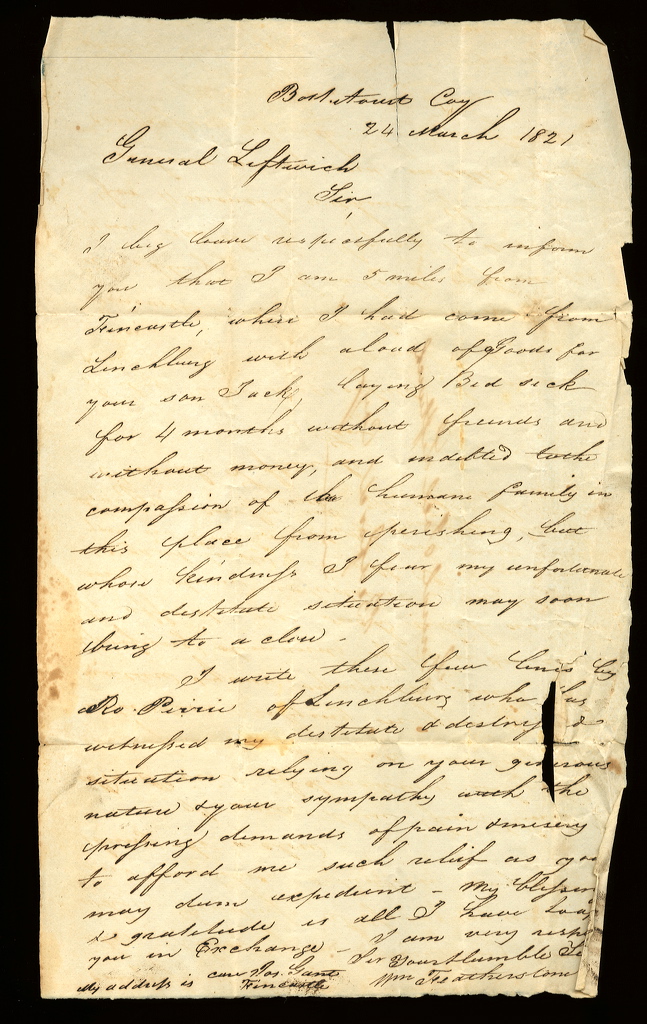 Bottetourt Coy
24 March 1821
General Leftwich
Sir
I beg leave respectfully to inform
you that I am 5 miles from
Fincastle, where I had come from
Linchburg with aload of Goods for
your son Jack, laying Bed sick
for 4 months without friends and
without money, and indebted to the
compassion of the humane family in
this place from perishing, but
whose kindness I fear my unfortunate
and destitute situation may soon
bring to a close -
I write these few lines by
Ro. Perrie of Linchburg who has
witnessed my destitute &
situation relying on your generous
nature & your sympathy with the
pressing demands of pain & misery
to afford me such relief as you
may deem expedient - My blessin
& gratitude is all I have to
you in Exchange - I am very resp
Sir Your Humble Se
My address is care Jos. Gant Wm Featherstone
Fincastle